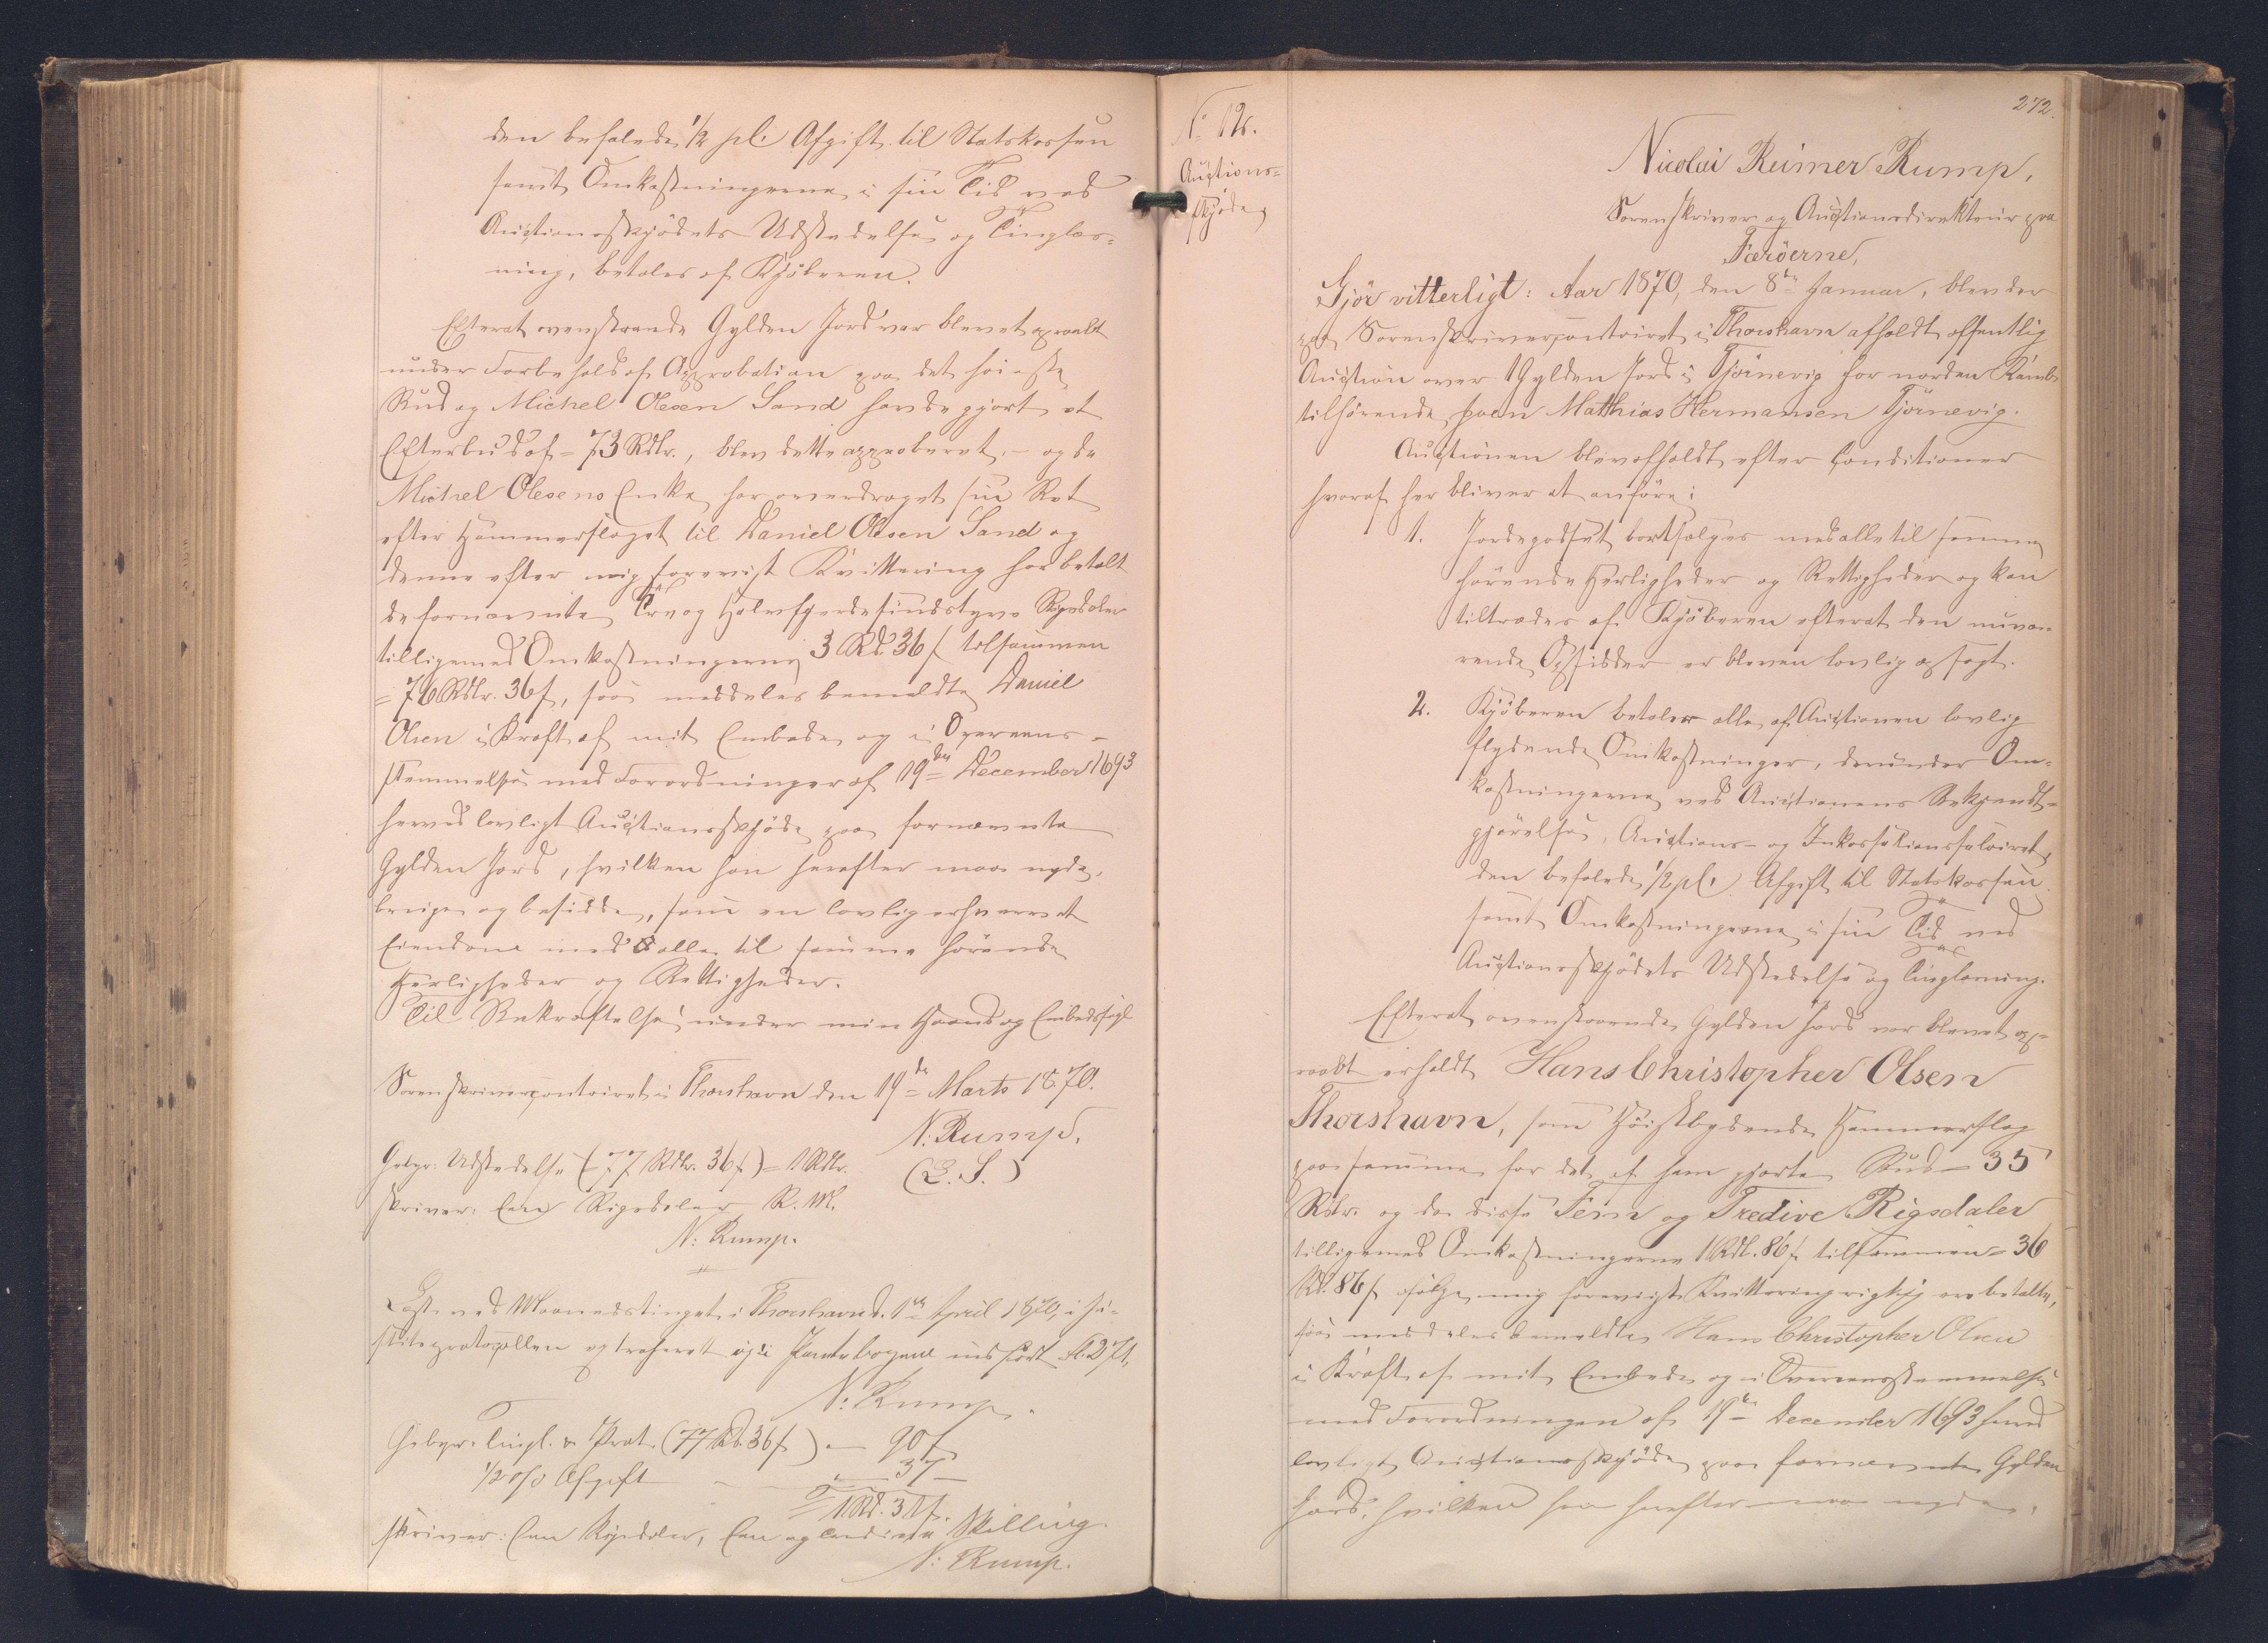 den befalede 1/2 pCt Afgift til Statskassen
samt Omkostningerne i sin Tid ved
Auctionsskjödets Udstedelse og Tinglæs-
ning, betales af Kjöberen.
Efterat ovenstaaende Gylden Jord var blevet opraabt
under Forbehold af Approbation paa det höieste
Bud og Michel Olesen Sand havde gjort et
Efterbud af = 73 Rdlr., blev dette approberet, – og da
Michel Olesens Enke har overdraget sin Ret
efter Hammerslaget til Daniel Olesen Sand og
denne efter mig forevist Kvittering har betalt
de fornævnte Tre og Halvfjerdesindstyve Rigsdaler
tilligemed Omkostningerne 3 Rd. 36 ß tilsammen
= 76 Rdlr. 36 ß, saa meddeles bemeldte Daniel
Olsen i Kraft af mit Embede og i Overeens-
stemmelse med Forordningen af 19de December 1693
herved lovligt Auctionsskjöde paa fornævnte
Gylden Jord, hvilken han herefter maa nyde,
bruge og besidde, som en lovlig erhvervet
Eiendom med alle til samme hörende
Herligheder og Rettigheder.
Til Bekræftelse under min Haand og Embedssegl
Sorenskrivercontoiret i Thorshavn den 19de Marts 1870.
N: Rump.
(L. S.)
Gebyr: Udstedelse (77 Rdlr. 36 ß) = 1 Rdlr.
skriver: Een Rigsdaler R. M.
N: Rump.
Læst ved Maanedstinget i Thorshavn d. 1ste April 1870, i Ju-
stitsprotocollen og i Pantebogen indfört Fol. 271.
N: Rump.
Gebyr: Tingl. & Prot. (77 Rd. 36 ß) – 90 ß
1/2 % Afgift – 37 –
= 1 Rd. 31 ß.
skriver: Een Rigsdaler, Een og Tredive Skilling.
N: Rump.
No 12.
Auctions-
skjöde
272.
Nicolai Reimer Rump,
Sorenskriver og Auctionsdirekteur paa
Færöerne,
Gjör vitterligt: Aar 1870, den 8de Januar, blev der
paa Sorenskrivercontoiret i Thorshavn afholdt offentlig
Auction over 1 Gylden Jord i Tjörnevig for norden
tilhörende Poen Matthias Hermansen Tjörnevig.
Auctionen blev afholdt efter Conditioner
hvoraf her bliver at anföre:
1. Jordegodset bortsælges med alle til samme
hörende Herligheder og Rettigheder og kan
tiltrædes af Kjöberen efterat den nuvæ-
rende Opsidder er bleven lovlig opsagt.
2. Kjöberen betaler alle af Auctionen lovlig
flydende Omkostninger, derunder Om-
kostningerne ved Auctionens Bekjendt-
gjörelse, Auctions- og Inkassationssalairet,
den befalede 1/2 pCt Afgift til Statskassen
samt Omkostningerne i sin Tid ved
Auctionsskjödets Udstedelse og Tinglæsning.
Efterat ovenstaaende Gylden Jord var blevet op-
raabt erholdt Hans Christopher Olsen
Thorshavn, som Höistbydende Hammerslag
paa samme for det af ham gjorte Bud – 35
Rdlr. og da disse Fem og Tredive Rigsdaler
tilligemed Omkostningerne 1 Rdl. 86 ß tilsammen = 36
Rd. 86 ß ifölge mig forevist Kvittering rigtig ere betalte,
saa meddeles bemeldte Hans Christopher Olsen
i Kraft af mit Embede og i Overeensstemmelse
med Forordningen af 19de December 1693 herved
lovligt Auctionsskjöde paa fornævnte Gylden
Jord, hvilken han herefter maa nyde,